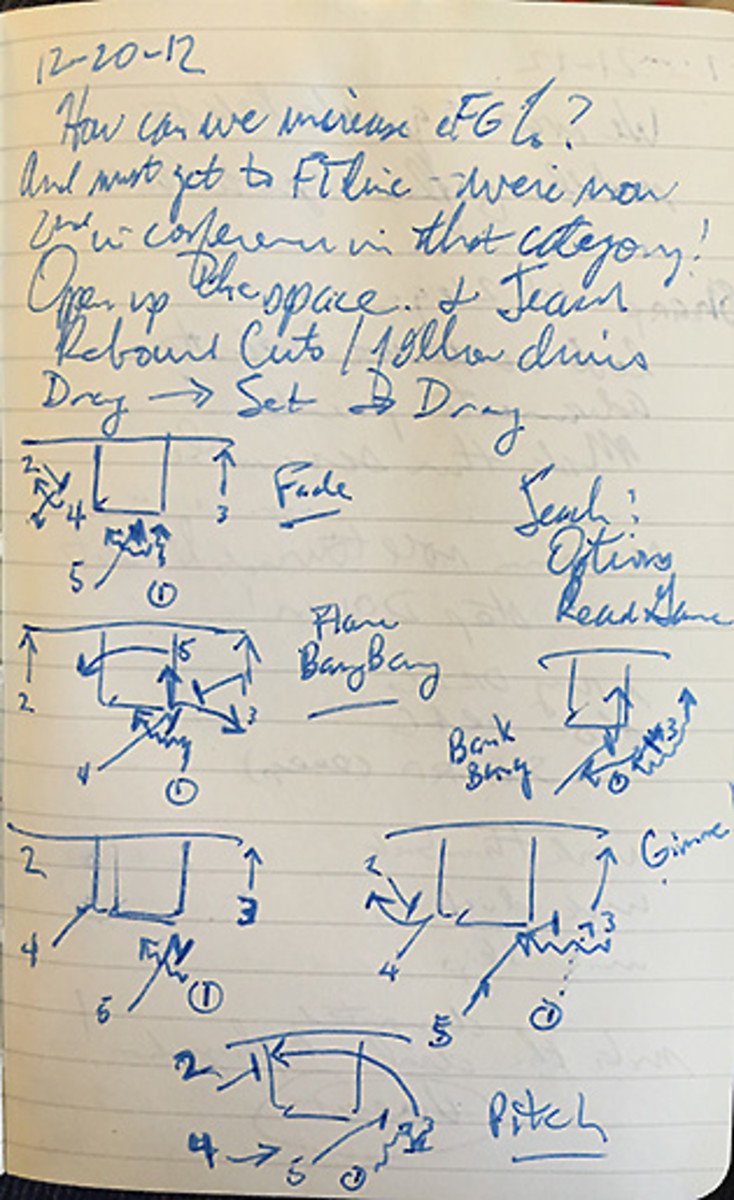 12-20-12
How can we increase eFG%?
And must get to FT line - we're now
2nd in conference in that category!
Open up the space. & Team
Rebound Cuts / drives
Drag → Set → Drag
2
4
3
5
1
Fade
Teach:
Options
Read Game
5
2
3
4
1
Flare
Bang Bang
3
1
Bank
Bang
2
3
4
5
1
2
3
4
5
1
Gimme
2
4
5
1
Pitch